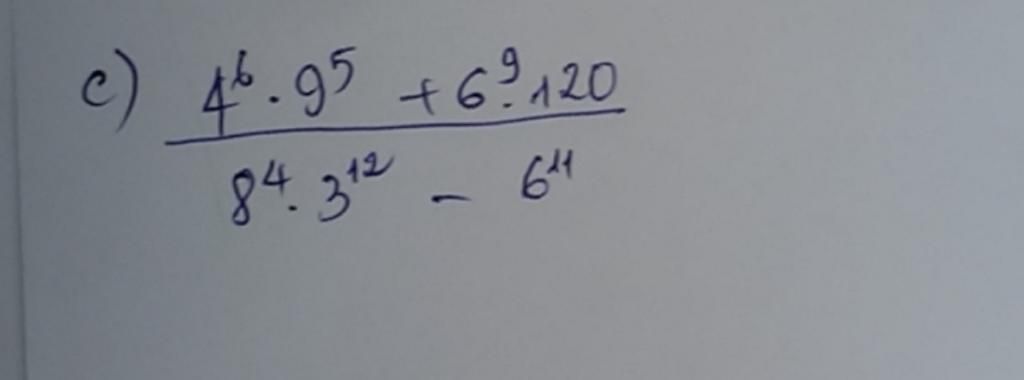 c) 4⁶ · 9⁵ + 6⁹ · 120
8⁴ · 3¹² - 6¹¹